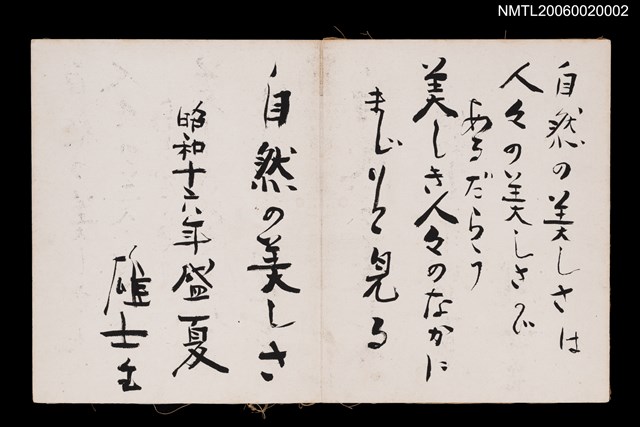 NMTL20060020002
自然の美しさは
人々の美しさで
あるだらう
美しき人々のなかに
まじりて見る
自然の美しさ
昭和十六年盛夏
雄士生